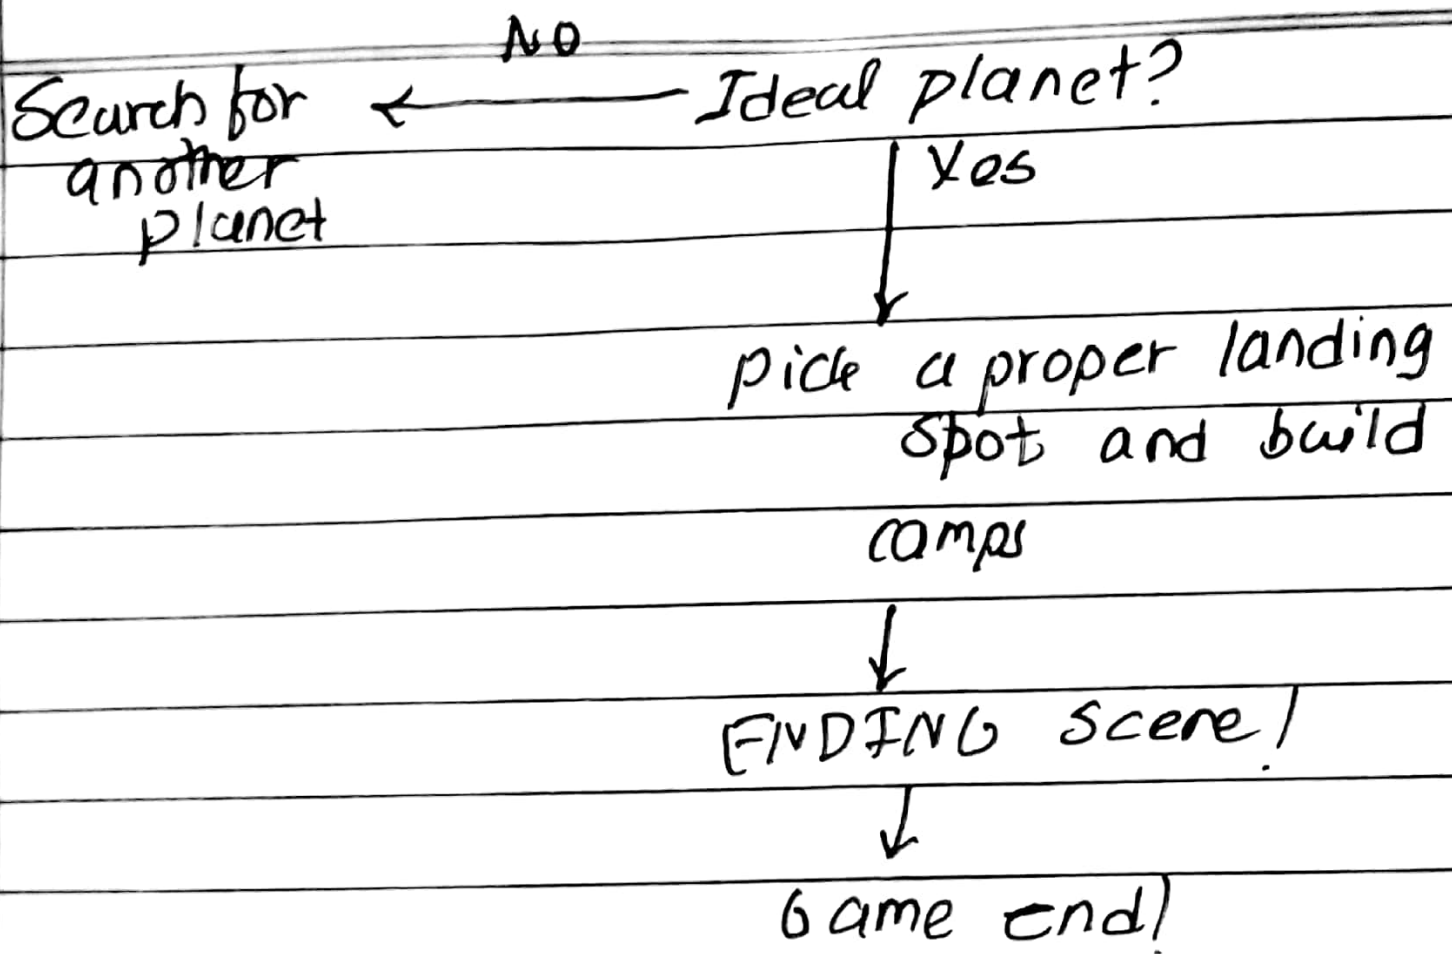 NO
Search for
Ideal planet?
another
planet
Yes
pick a proper landing
spot and build
camps
ENDING scene!
Game end!